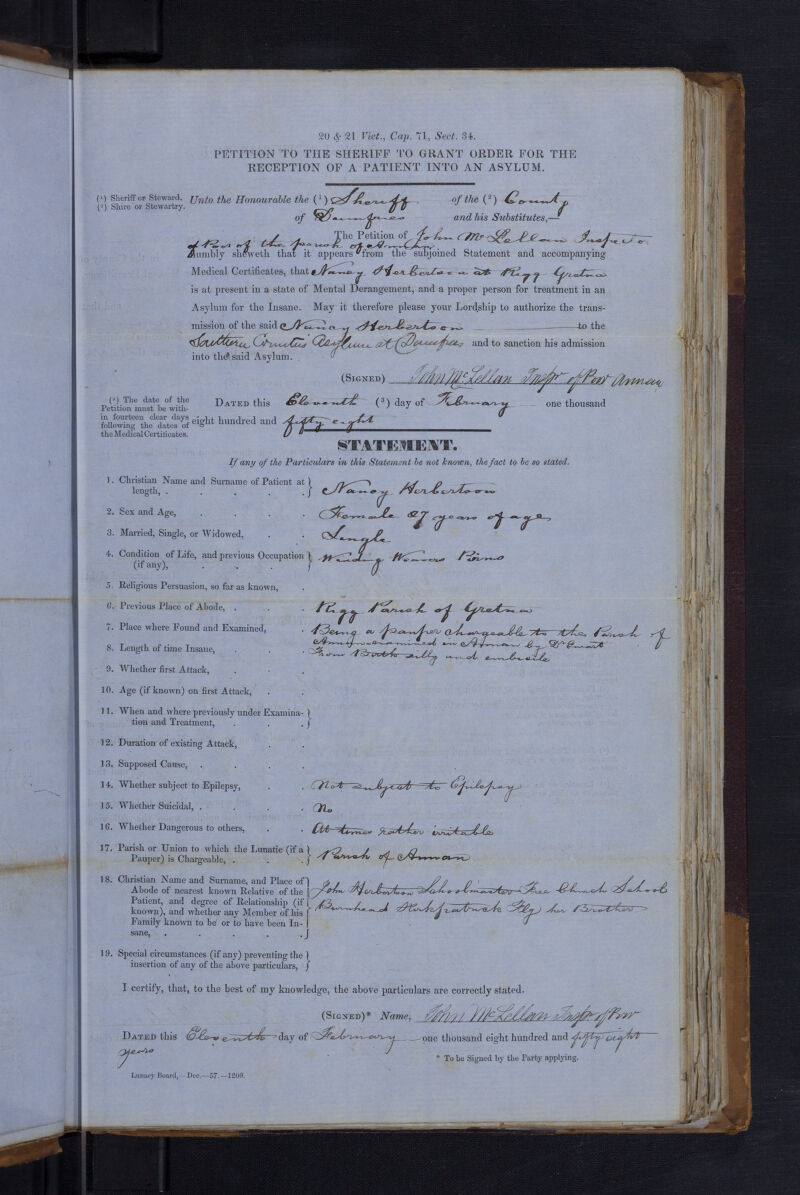 20 & 21 Vict., Cap. 71, Sect. 34.
PETITION TO THE SHERIFF TO GRANT ORDER FOR THE
RECEPTION OF A PATIENT INTO AN ASYLUM.
(¹) Sheriff or Steward.
(²) Shire or Stewartry.
Unto the Honourable the (¹) Sheriff of the (²) County
of Dumfries and his Substitutes,—
The Petition of John McLellan Inspector
of Poor of the parish of Annan
Humbly sheweth that it appears from the subjoined Statement and accompanying
Medical Certificates, that Nancy Herbertson at Rigg Gretna
is at present in a state of Mental Derangement, and a proper person for treatment in an
Asylum for the Insane. May it therefore please your Lordship to authorize the trans-
mission of the said Nancy Herbertson to the
Southern Counties Asylum at Dumfries and to sanction his admission
into the said Asylum.
(SIGNED) John McLellan Inspr of Poor Annan
(³) The date of the
Petition must be with-
in fourteen clear days
following the dates of
the Medical Certificates.
DATED this Eleventh (³) day of February one thousand
eight hundred and fifty eight
STATEMENT.
If any of the Particulars in this Statement be not known, the fact to be so stated.
1. Christian Name and Surname of Patient at
length, . . . . . Nancy Herbertson
2. Sex and Age, . . . . Female 27 years of age
3. Married, Single, or Widowed, . . Single
4. Condition of Life, and previous Occupation
(if any), . . . . Winding Weavers Pirns
5. Religious Persuasion, so far as known, .
6. Previous Place of Abode, . . . Rigg Parish of Gretna
7. Place where Found and Examined, . Being a pauper chargeable to the Parish of
Annan examined in Annan by Dr
8. Length of time Insane, . . . From Birth silly and embecile
9. Whether first Attack, . .
10. Age (if known) on first Attack, . .
11. When and where previously under Examina-
tion and Treatment, . . .
12. Duration of existing Attack, . .
13. Supposed Cause, . . . .
14. Whether subject to Epilepsy, . . Not subject to Epilepsy
15. Whether Suicidal, . . . . No
16. Whether Dangerous to others, . . At times rather irritable
17. Parish or Union to which the Lunatic (if a
Pauper) is Chargeable, . . . Parish of Annan
18. Christian Name and Surname, and Place of
Abode of nearest known Relative of the
Patient, and degree of Relationship (if
known), and whether any Member of his
Family known to be or to have been In-
sane, . . . . .
John Herbertson Schoolmaster Free Church School
Burnhead Kirkpatrick Flg her Brother
19. Special circumstances (if any) preventing the
insertion of any of the above particulars,
I certify, that, to the best of my knowledge, the above particulars are correctly stated.
(SIGNED)* Name, John McLellan Inspr of Poor
DATED this Eleventh day of February one thousand eight hundred and fifty eight
years
* To be Signed by the Party applying.
Lunacy Board,—Dec.—57.—1200.